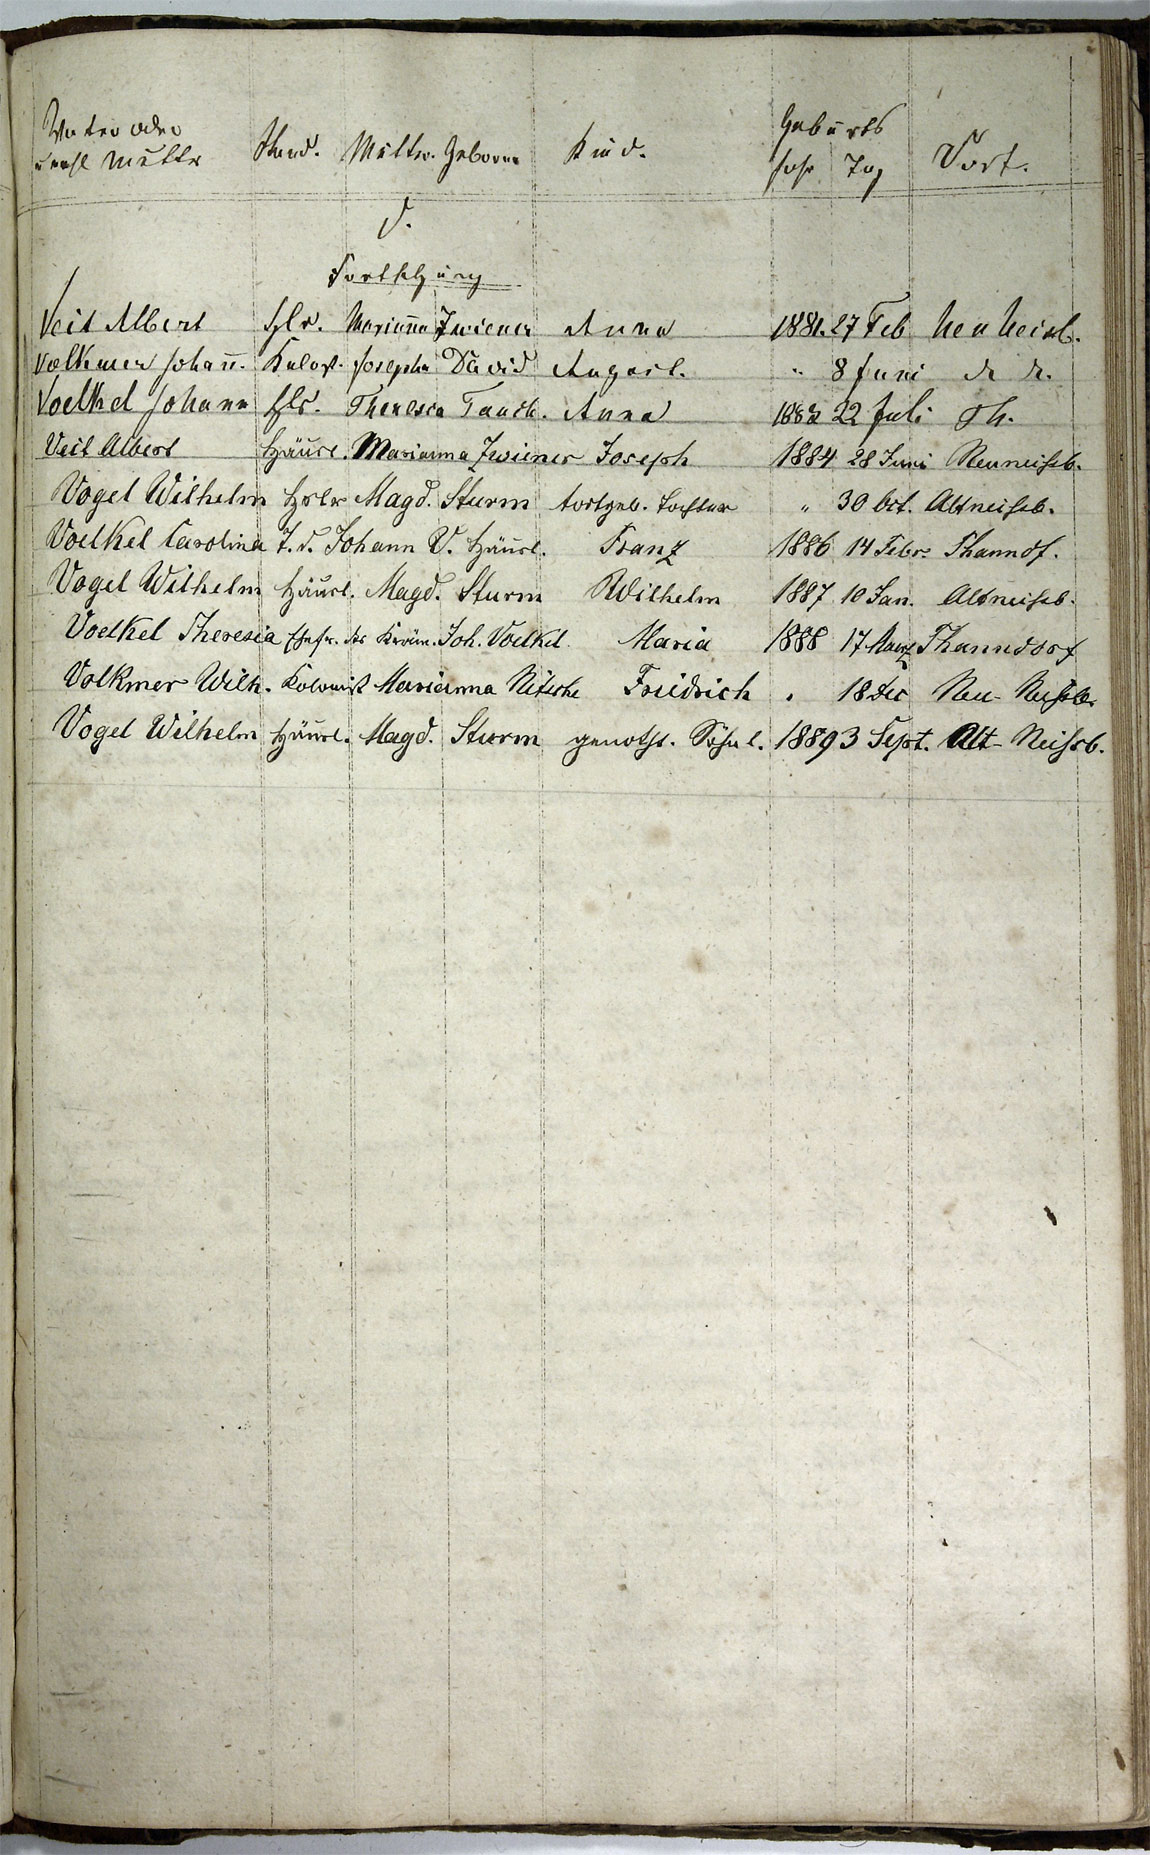 Vater oder
unehl Mutter Stand. Mutter. Geborene Kind. Geburts
Jahr Tag Dorf.
V.
Fortsetzung
Veit Albert Hslr. Marianna Zwiener Anna 1881. 27 Feb Neu Neisb.
Volkmer Johañ. Kolost. Josepha David August. " 8 Juni
Voelkel Johann Hslr. Theresia Tauch. Anna 1883 22 Juli Th.
Veit Albert Häusl. Marianna Zwiener Joseph 1884 28 Juni Neuneissb.
Vogel Wilhelm Hslr Magd. Sturm todtgeb. Tochter " 30 Oct. Altneissb.
Voelkel Carolina T. d. Johann V. Häusl. Franz 1886 14 Febr. Thanndf.
Vogel Wilhelm Häusl. Magd. Sturm Wilhelm 1887 10 Jan. Altneissb.
Voelkel Theresia Ehefr. des Kräm. Joh. Voelkel. Maria 1888 17 Maerz Thanndorf
Volkmer Wilh. Kolonist Marianna Nitsche Friedrich " 18 Dec Neu-Neissb.
Vogel Wilhelm Häusl. Magd. Sturm genotht. Söhnl. 1889 3 Sept. Alt-Neissb.